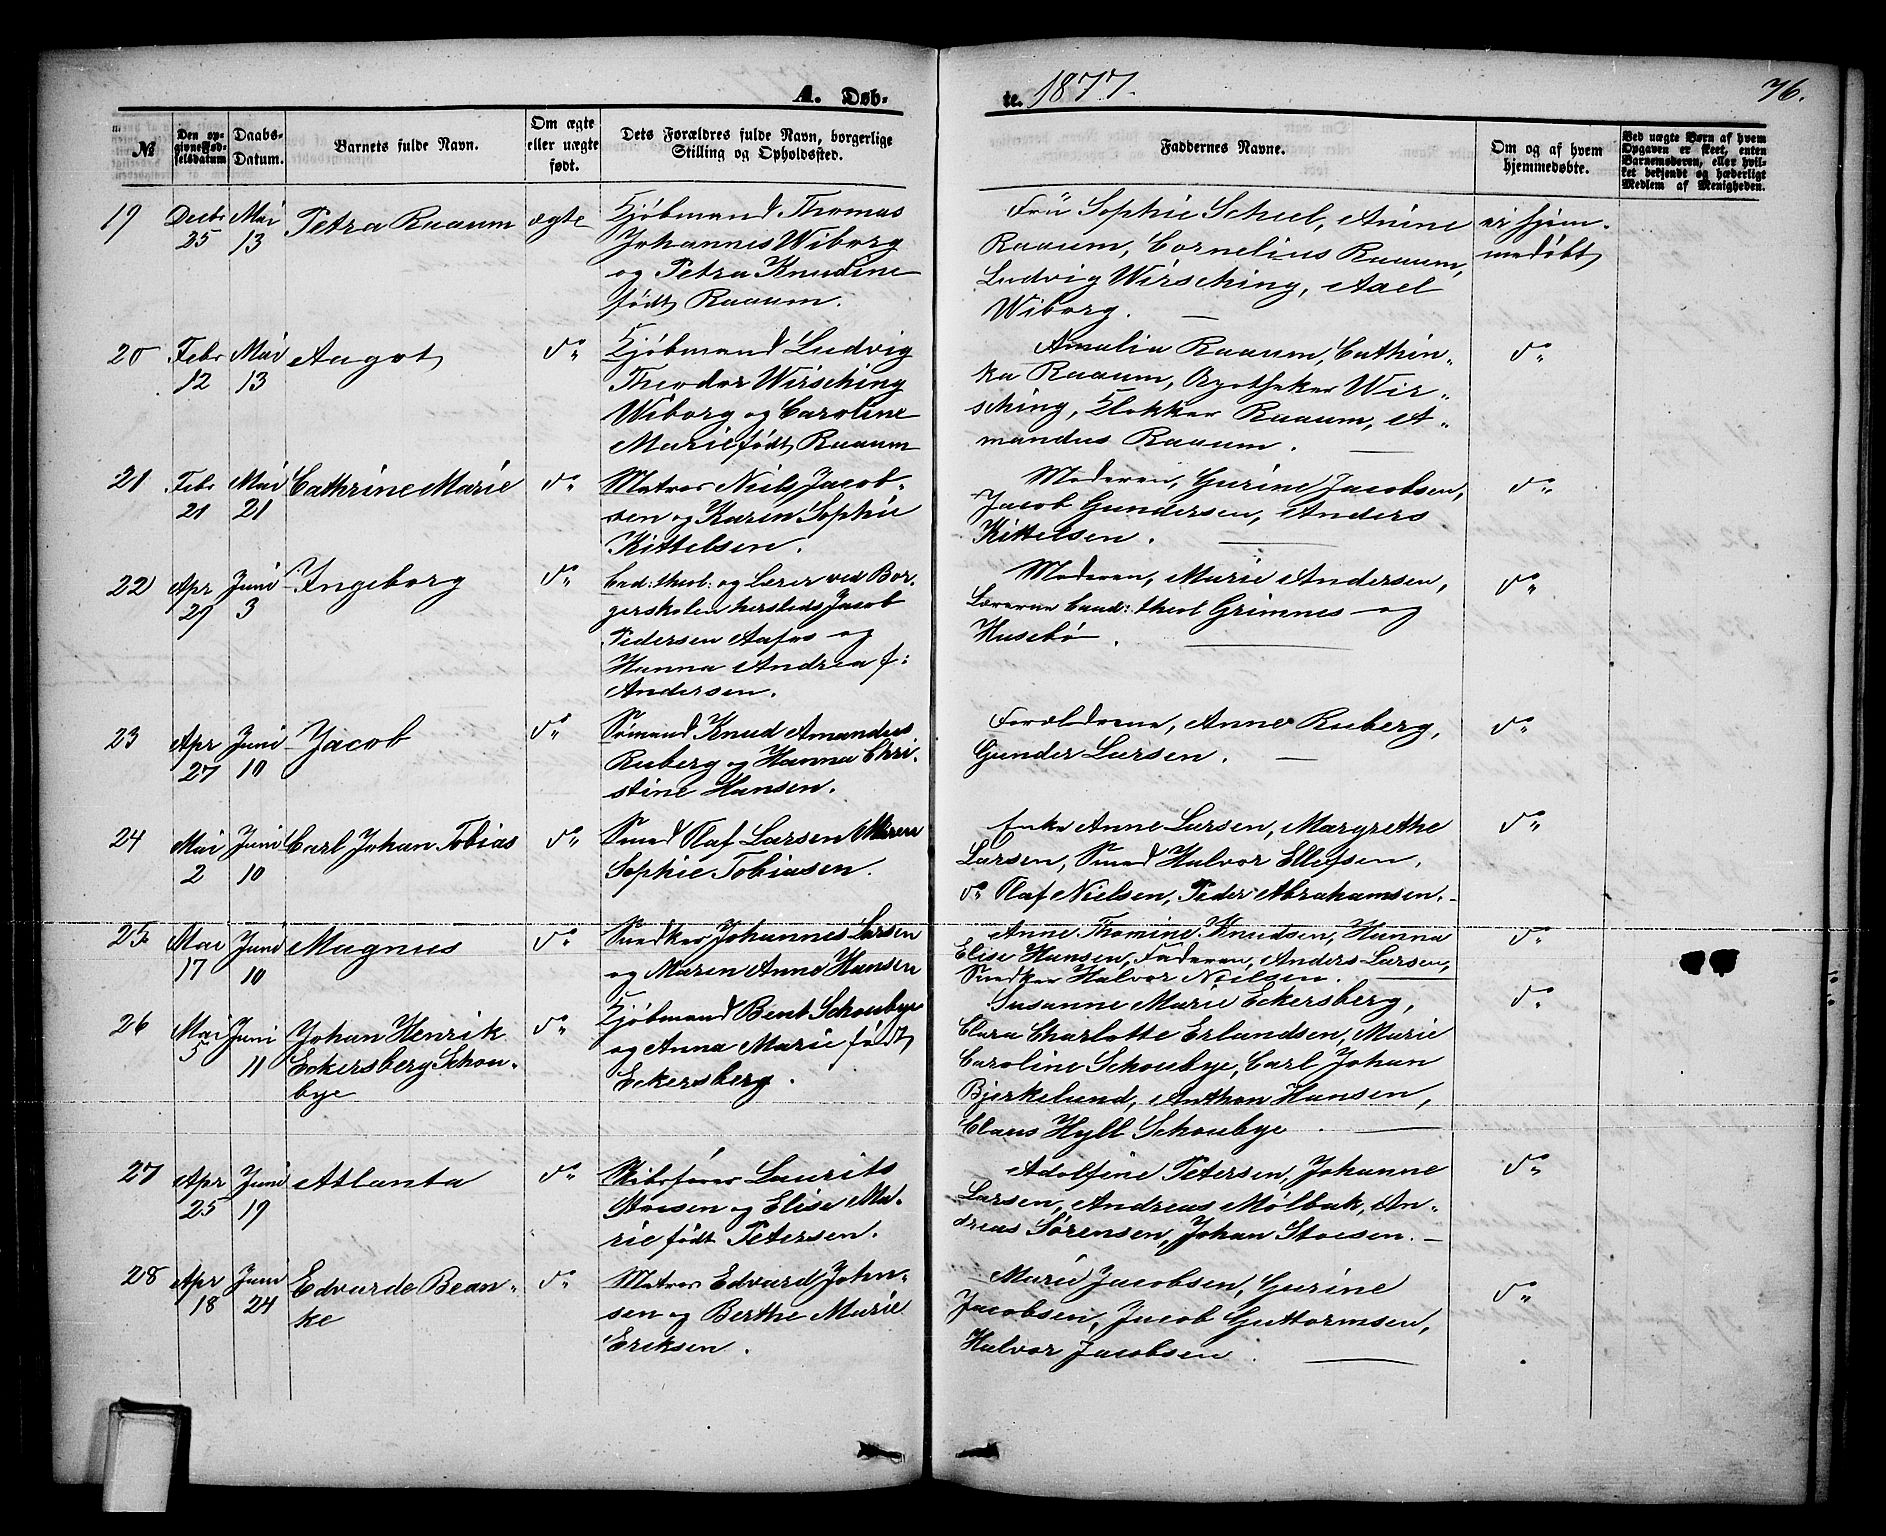 A. Døb-
te. 1877.
76.
№
Den opgivne Fødselsdatum
Daabs-Datum.
Barnets fulde Navn.
Om ægte eller uægte født.
Dets Forældres fulde Navn, borgerlige Stilling og Opholdssted.
Faddernes Navne.
Om og af hvem hjemmedøbt.
Ved uægte Børn af hvem Opgaven er skeet, enten Barnemoderen, eller hvilket bekjendt og hæderligt Medlem af Menigheden.
19
Decbr 25
Mai 13
Petra Raaum
ægte
Kjøbmand Thomas
Johannes Wiborg
og Petra Knudine
født Raaum.
Frü Sophie Scheel, Anine
Raaum, Cornelius Raaum,
Ludvig Wirsching, Axel
Wiborg.
ei hjem-
medøbt
20
Febr 12
Mai 13
Aagot
do
Kjøbmand Ludvig
Theodor Wirsching
Wiborg og Caroline
Marie født Raaum
Amalia Raaum, Cathin-
ka Raaum, Apotheker Wir-
sching, Klokker Raaum, A-
mandus Raaum.
do
21
Febr 21
Mai 21
Cathrine Marie
do
Matros Niels Jacob-
sen og Karen Sophie
Kittelsen.
Moderen, Gurine Jacobsen,
Jacob Gundersen, Anders
Kittelsen.
do
22
Apr 29
Juni 3
Ingeborg
do
Cand: theol: og Lærer ved Bor-
gerskolen hersteds Jacob
Pedersen Aafos og
Hanna Andrea f:
Andersen.
Moderen, Marie Andersen,
Lærerne Cand: theol Grimnes og
Husebø.
do
23
Apr 27
Juni 10
Jacob
do
Sømand Knud Amandus
Ruberg og Hanna Chri-
stine Hansen.
Forældrene, Anne Ruberg,
Gunder Larsen.
do
24
Mai 2
Juni 10
Carl Johan Tobias
do
Smed Olaf Larsen Maren
Sophie Tobiasen.
Enke Anne Larsen, Margrethe
Larsen, Smed Halvor Ellefsen,
do Olaf Nielsen, Peder Abrahamsen.
do
25
Mai 17
Juni 10
Magnus
do
Snedker Johannes Larsen
og Maren Anne Hansen
Anne Thomine Knudsen, Hanna
Elise Hansen, Faderen, Anders Larsen,
Snedker Halvor Nielsen.
do
26
Mai 5
Juni 11
Johan Henrik
Eckersberg Schou-
bye
do
Kjøbmand Bent Schoubye
og Anna Marie født
Eckersberg.
Susanne Marie Eckersberg,
Clara Charlotte Erlandsen, Marie
Caroline Schoubye, Carl Johan
Bjerkelund, Anthon Hansen,
Claus Hyll Schoubye.
do
27
Apr 25
Juni 19
Atlanta
do
Skibsfører Laurits
Stoesen og Elise Ma-
rie født Petersen.
Adolfine Petersen, Johanne
Larsen, Andreas Mølbak, An-
dreas Sørensen, Johan Stoesen.
do
28
Apr 18
Juni 24
Edvarde Bean-
ke
do
Matros Edvard John-
sen og Berthe Marie
Eriksen.
Marie Jacobsen, Gurine
Jacobsen, Jacob Guttormsen,
Halvor Jacobsen.
do